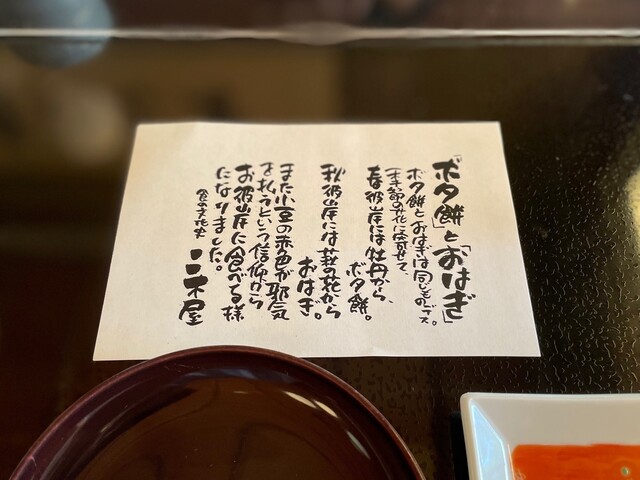 「ボタ餅」と「おはぎ」
ボタ餅とおはぎは同じものです。
季節の花に寄せて、
春彼岸には牡丹から、
ボタ餅。
秋彼岸には萩の花から
おはぎ。
また小豆の赤色が邪気
を払うという信仰から
お彼岸に食べる様
になりました。
食の文化史 二木屋